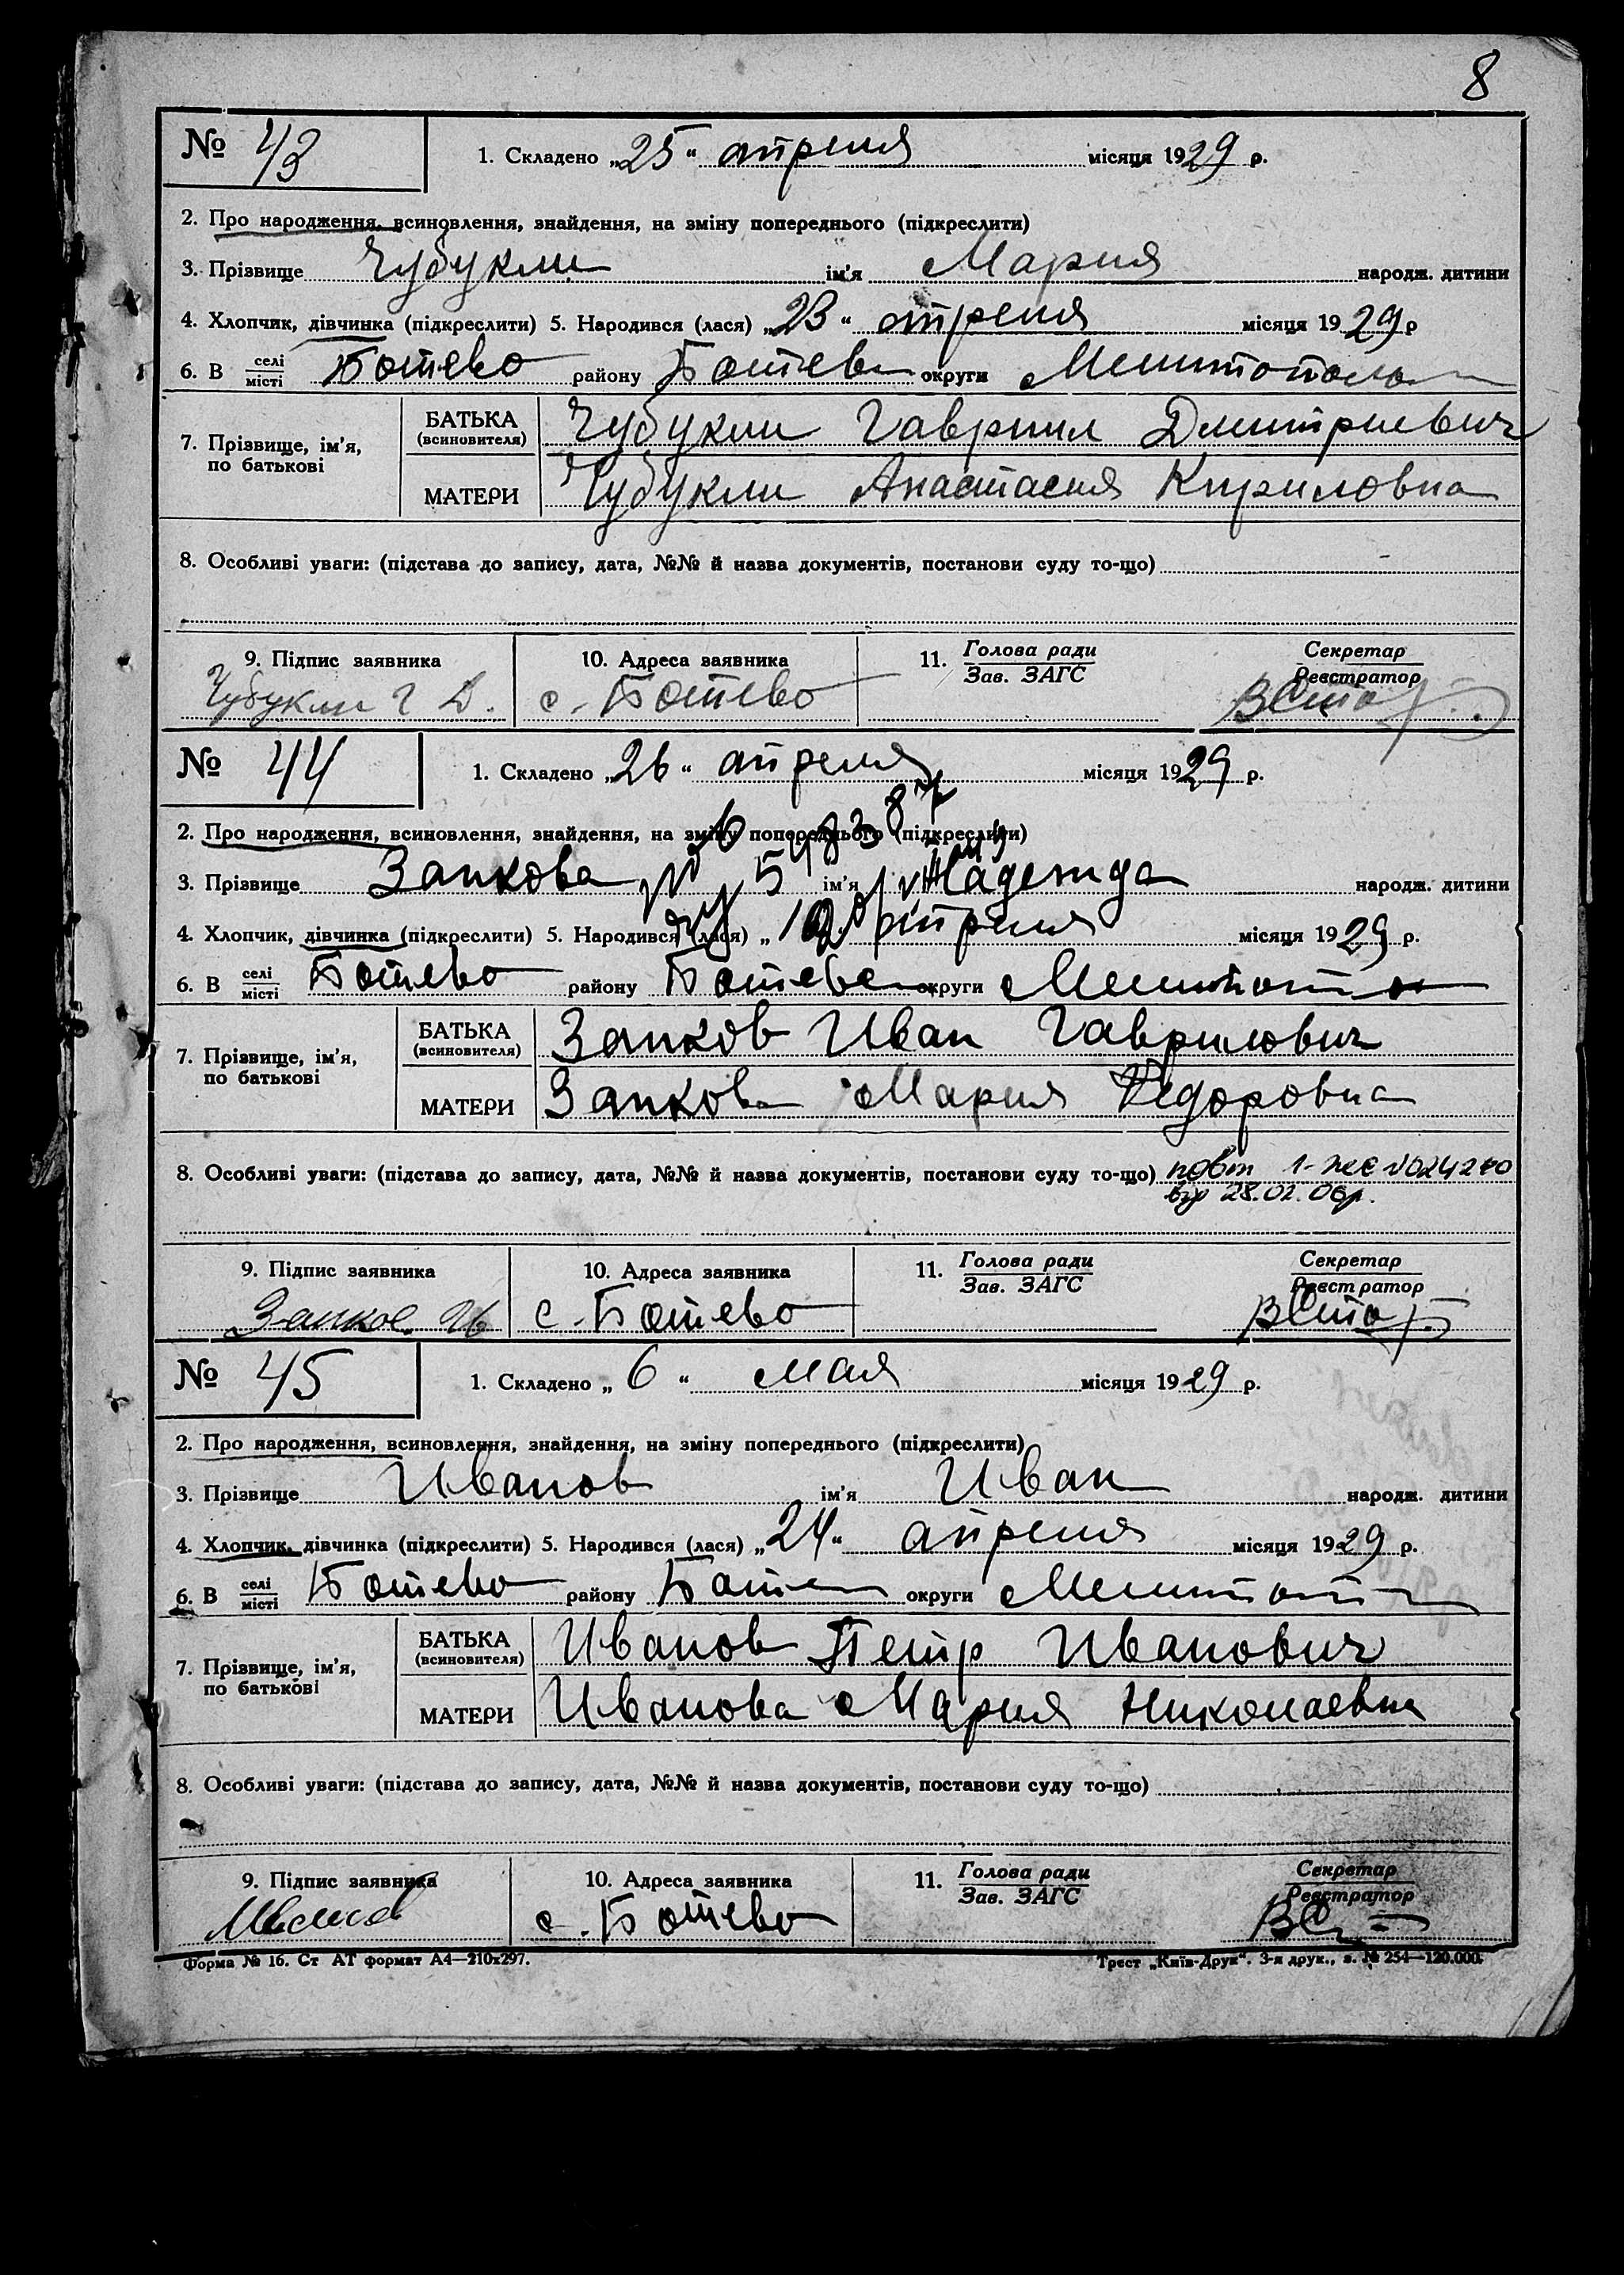 8
№ 43
1. Складено „25“ апреля місяця 1929 р.
2. Про народження, всиновлення, знайдення, на зміну попереднього (підкреслити)
3. Прізвище Чубукли ім'я Мария народж. дитини
4. Хлопчик, дівчинка (підкреслити) 5. Народився (лася) „23“ апреля місяця 1929 р
6. В селі місті Ботево району Ботев округи Мелитополь
7. Прізвище, ім'я, по батькові
БАТЬКА (всиновителя) Чубукли Гавриил Дмитриевич
МАТЕРИ Чубукли Анастасия Кириловна
8. Особливі уваги: (підстава до запису, дата, №№ й назва документів, постанови суду то-що)
9. Підпис заявника 10. Адреса заявника 11. Голова ради Зав. ЗАГС Секретар Реєстратор
Чубукли Г Д. с. Ботево
№ 44
1. Складено „26“ апреля місяця 1929 р.
2. Про народження, всиновлення, знайдення, на зміну попереднього (підкреслити)
3. Прізвище Запкова ім'я Надежда народж. дитини
4. Хлопчик, дівчинка (підкреслити) 5. Народився (лася) „ апреля місяця 1929 р.
6. В селі місті Ботево району Ботев округи Мелитоп
7. Прізвище, ім'я, по батькові
БАТЬКА (всиновителя) Запков Иван Гаврилович
МАТЕРИ Запкова Мария Федоровна
8. Особливі уваги: (підстава до запису, дата, №№ й назва документів, постанови суду то-що) повт 1-ЖС
від 28.02.06р.
9. Підпис заявника 10. Адреса заявника 11. Голова ради Зав. ЗАГС Секретар Реєстратор
Запков Ив с. Ботево
№ 45
1. Складено „6“ мая місяця 1929 р.
2. Про народження, всиновлення, знайдення, на зміну попереднього (підкреслити)
3. Прізвище Иванов ім'я Иван народж. дитини
4. Хлопчик, дівчинка (підкреслити) 5. Народився (лася) „24“ апреля місяця 1929 р.
6. В селі місті Ботево району Ботев округи Мелитоп
7. Прізвище, ім'я, по батькові
БАТЬКА (всиновителя) Иванов Петр Иванович
МАТЕРИ Иванова Мария Николаевна
8. Особливі уваги: (підстава до запису, дата, №№ й назва документів, постанови суду то-що)
9. Підпис заявника 10. Адреса заявника 11. Голова ради Зав. ЗАГС Секретар Реєстратор
Иванов с. Ботево
Форма № 16. Ст АТ формат А4—210х297. Трест „Київ-Друк“. 3-я друк., з. № 254—120.000.